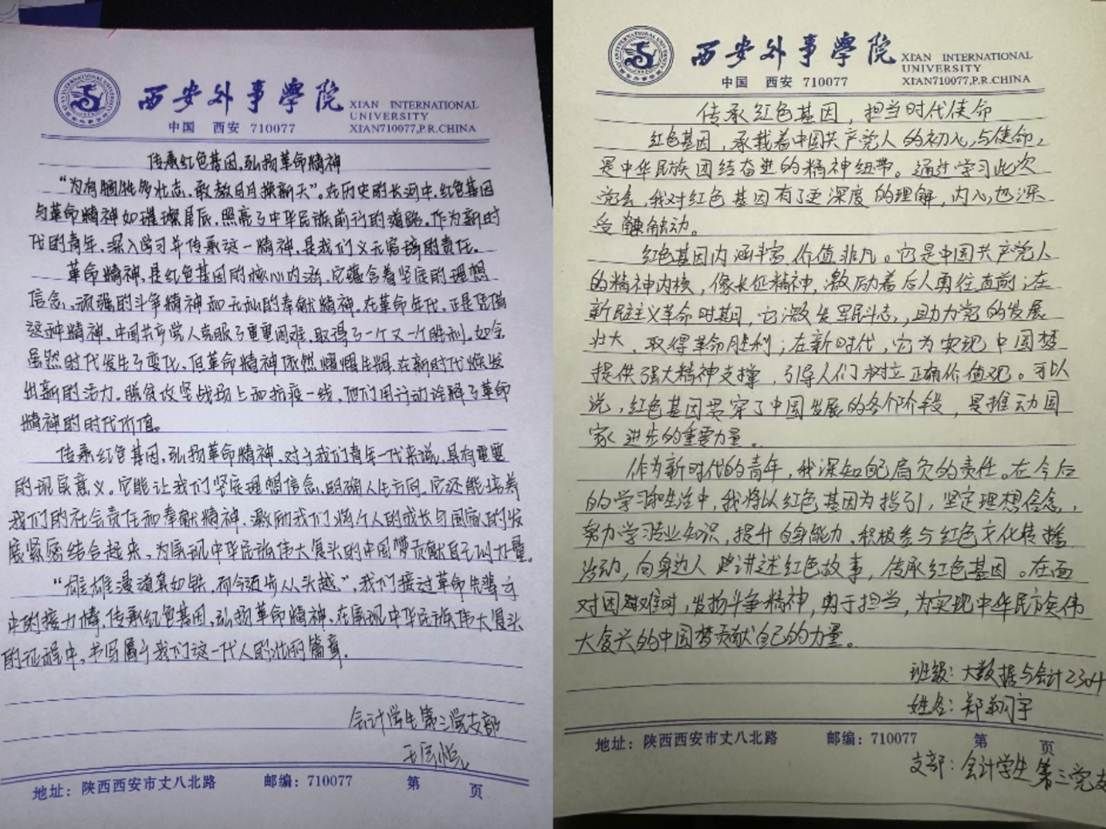 西安外事學院
XIAN INTERNATIONAL
UNIVERSITY
中国 西安 710077
XIAN710077,P.R.CHINA
传承红色基因,弘扬革命精神
“为有牺牲多壮志,敢教日月换新天”。在历史的长河中,红色基因
与革命精神如璀璨星辰,照亮了中华民族前行的道路。作为新时
代的青年,深入学习并传承这一精神,是我们义不容辞的责任。
革命精神,是红色基因的核心内涵,它蕴含着坚定的理想
信念、顽强的斗争精神和无私的奉献精神。在革命年代,正是凭借
这种精神,中国共产党人克服了重重困难,取得了一个又一个胜利。如今
虽然时代发生了变化,但革命精神依然熠熠生辉,在新时代焕发
出新的活力。脱贫攻坚战场上和抗疫一线,他们用行动诠释了革命
精神的时代价值。
传承红色基因,弘扬革命精神。对于我们青年一代来说,具有重要
的现实意义。它能让我们坚定理想信念,明确人生方向,它还能培养
我们的社会责任和奉献精神,激励我们将个人的成长与国家的发
展紧密结合起来,为实现中华民族伟大复兴的中国梦贡献自己的力量。
“雄雄漫道真如铁,而今迈步从头越”,我们接过革命先辈手
中的接力棒,传承红色基因,弘扬革命精神,在实现中华民族伟大复兴
的征程中,书写属于我们这一代人的篇章。
会计学生第三党支部
地址:陕西西安市丈八北路 邮编:710077 第 页
西安外事學院
XIAN INTERNATIONAL
UNIVERSITY
中国 西安 710077
XIAN710077,P.R.CHINA
传承红色基因,担当时代使命
红色基因,承载着中国共产党人的初心与使命,
是中华民族团结奋进的精神纽带。通过学习此次
党会,我对红色基因有了更深度的理解,内心也深
受触动。
红色基因内涵丰富,价值非凡。它是中国共产党人
的精神内核,像长征精神,激励着后人勇往直前;在
新民主主义革命时期,它激发军民斗志,助力党的发展
壮大,取得革命胜利;在新时代,它为实现中国梦
提供强大精神支撑,引导人们树立正确价值观。可以
说,红色基因贯穿了中国发展的各个阶段,是推动国
家进步的重要力量。
作为新时代的青年,我深知自己肩负的责任。在今后
的学习和生活中,我将以红色基因为指引,坚定理想信念,
努力学习专业知识,提升自身能力,积极参与红色文化传播
活动,向身边人讲述红色故事,传承红色基因。在面
对困难时,发扬斗争精神,勇于担当,为实现中华民族伟
大复兴的中国梦贡献自己的力量。
班级:大数据与会计2304
姓名:郑翔宇
地址:陕西西安市丈八北路 邮编:710077 第 页
支部:会计学生第三党支